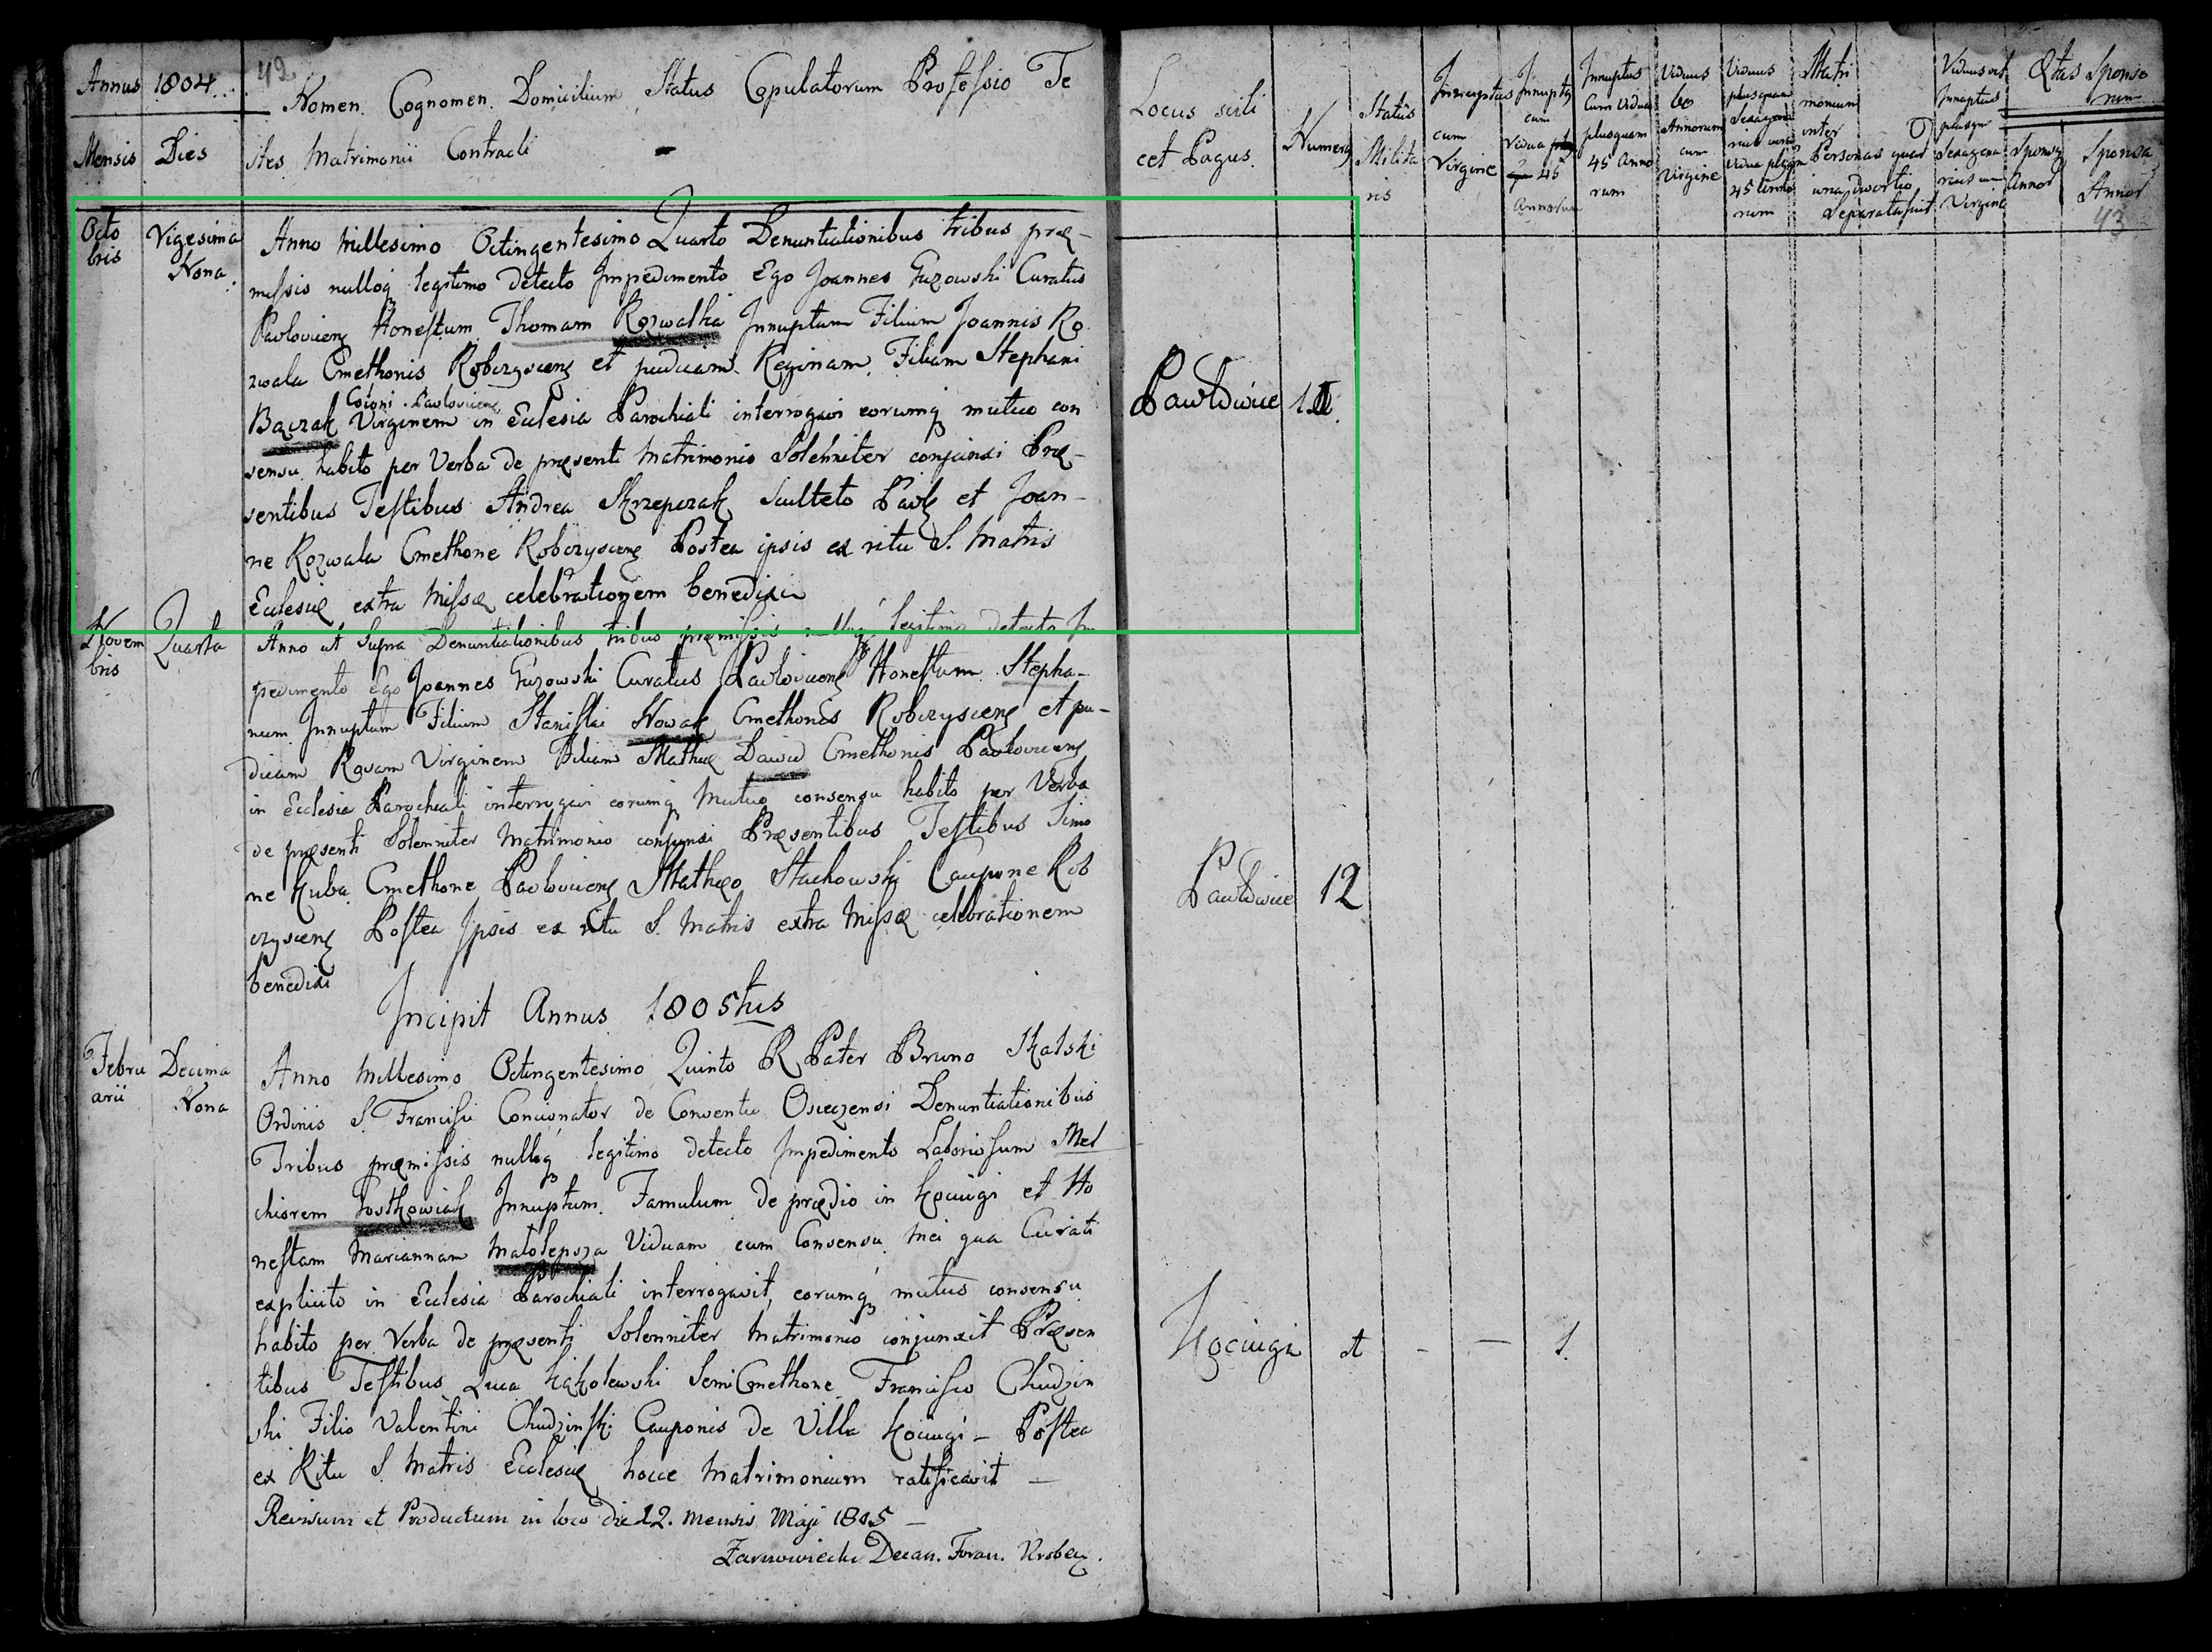 42
Annus 1804
Nomen Cognomen Domicilium Status Copulatorum Professio Te
Mensis Dies
stes Matrimonii Contracti
Octo
bris
Vigesima
Nona
Anno Millesimo Octingentesimo Quarto Denuntiationibus tribus præ-
missis nulloq legitimo detecto Impedimento Ego Joannes Guzowski Curatus
Pavlovicens Honestum Thomam Rozwalka Innuptum Filium Joannis Ro
zwala Cmethonis Robczyscens et pudicam Reginam Filiam Stephani
Coloni Pavlovicens
Bączak Virginem in Eclesia Parochiali interrogavi eorumq mutuo con
sensu habito per Verba de præsenti Matrimonio Solemniter conjunxi Præ-
sentibus Testibus Andrea Skrzepczak Sculteto Pavl et Joan-
ne Rozwala Cmethone Robczyscens Postea ipsis ex ritu S. Matris
Eclesiæ extra Missæ celebrationem benedixi
Novem
bris
Quarta
Anno ut Supra Denuntiationibus tribus præmissis nulloq legitimo detecto Im
pedimento Ego Joannes Guzowski Curatus Pavlovicens Honestum Stepha-
num Innuptum Filium Stanislai Nowak Cmethonis Robczyscens et pu-
dicam Rosam Virginem Filiam Mathiæ Dawid Cmethonis Pavlovicens
in Ecclesia Parochiali interrogavi eorumq Mutuo consensu habito per Verba
de præsenti Solemniter Matrimonio conjunxi Præsentibus Testibus Simo
ne Kuba Cmethone Pavlovicens Matheo Stachowski Caupone Rob
czyscens Postea Ipsis ex ritu S. Matris extra Missæ celebrationem
benedixi
Incipit Annus 1805tus
Febru
arii
Decima
Nona
Anno Millesimo Octingentesimo Quinto R Pater Bruno Skalski
Ordinis S. Francisci Concionator de Conventu Osieczensi Denuntiationibus
Tribus præmissis nulloq legitimo detecto Impedimento Laboriosum Mel
chiorem Innuptum Famulum de prædio in Kociugi et Ho
nestam Mariannam Małolepsza Viduam cum Consensu Mei qua Curati
explicito in Ecclesia Parochiali interrogavit, eorumq mutuo consensu
habito per Verba de præsenti Solemniter Matrimonio conjunxit Præsen
tibus Testibus Luca Kąkolewski SemiCmethone Francisco Chudzin
ski Filio Valentini Chudzinski Cauponis de Villa Kociugi - Postea
ex Ritu S. Matris Ecclesiæ hocce Matrimonium ratificavit -
Revisum et Productum in loco die 12. mensis Maji 1805 -
Decan. Foran. Kroben.
Locus sive
et Pagus
Numerus
Status
Milita
ris
Innuptus
cum
Virgine
Innuptus
cum
Vidua
45
Annorum
Innuptus
cum Vidua
plusquam
45 Anno
rum
Viduus
60
Annorum
cum
Virgine
Viduus
plusquam
Sexagena
rius cum
Vidua plusqm
45 Anno
rum
Matri
monium
inter
Personas quas
una divortio
Separata fuit
Viduus vel
Innuptus
plusqm
Sexagena
rius cum
Virgine
Ætas Sponso
rum
Sponsus
Annor
Sponsa
Annor
43
Pawłowice
Pawłowice 12
Kociugi - — 1.